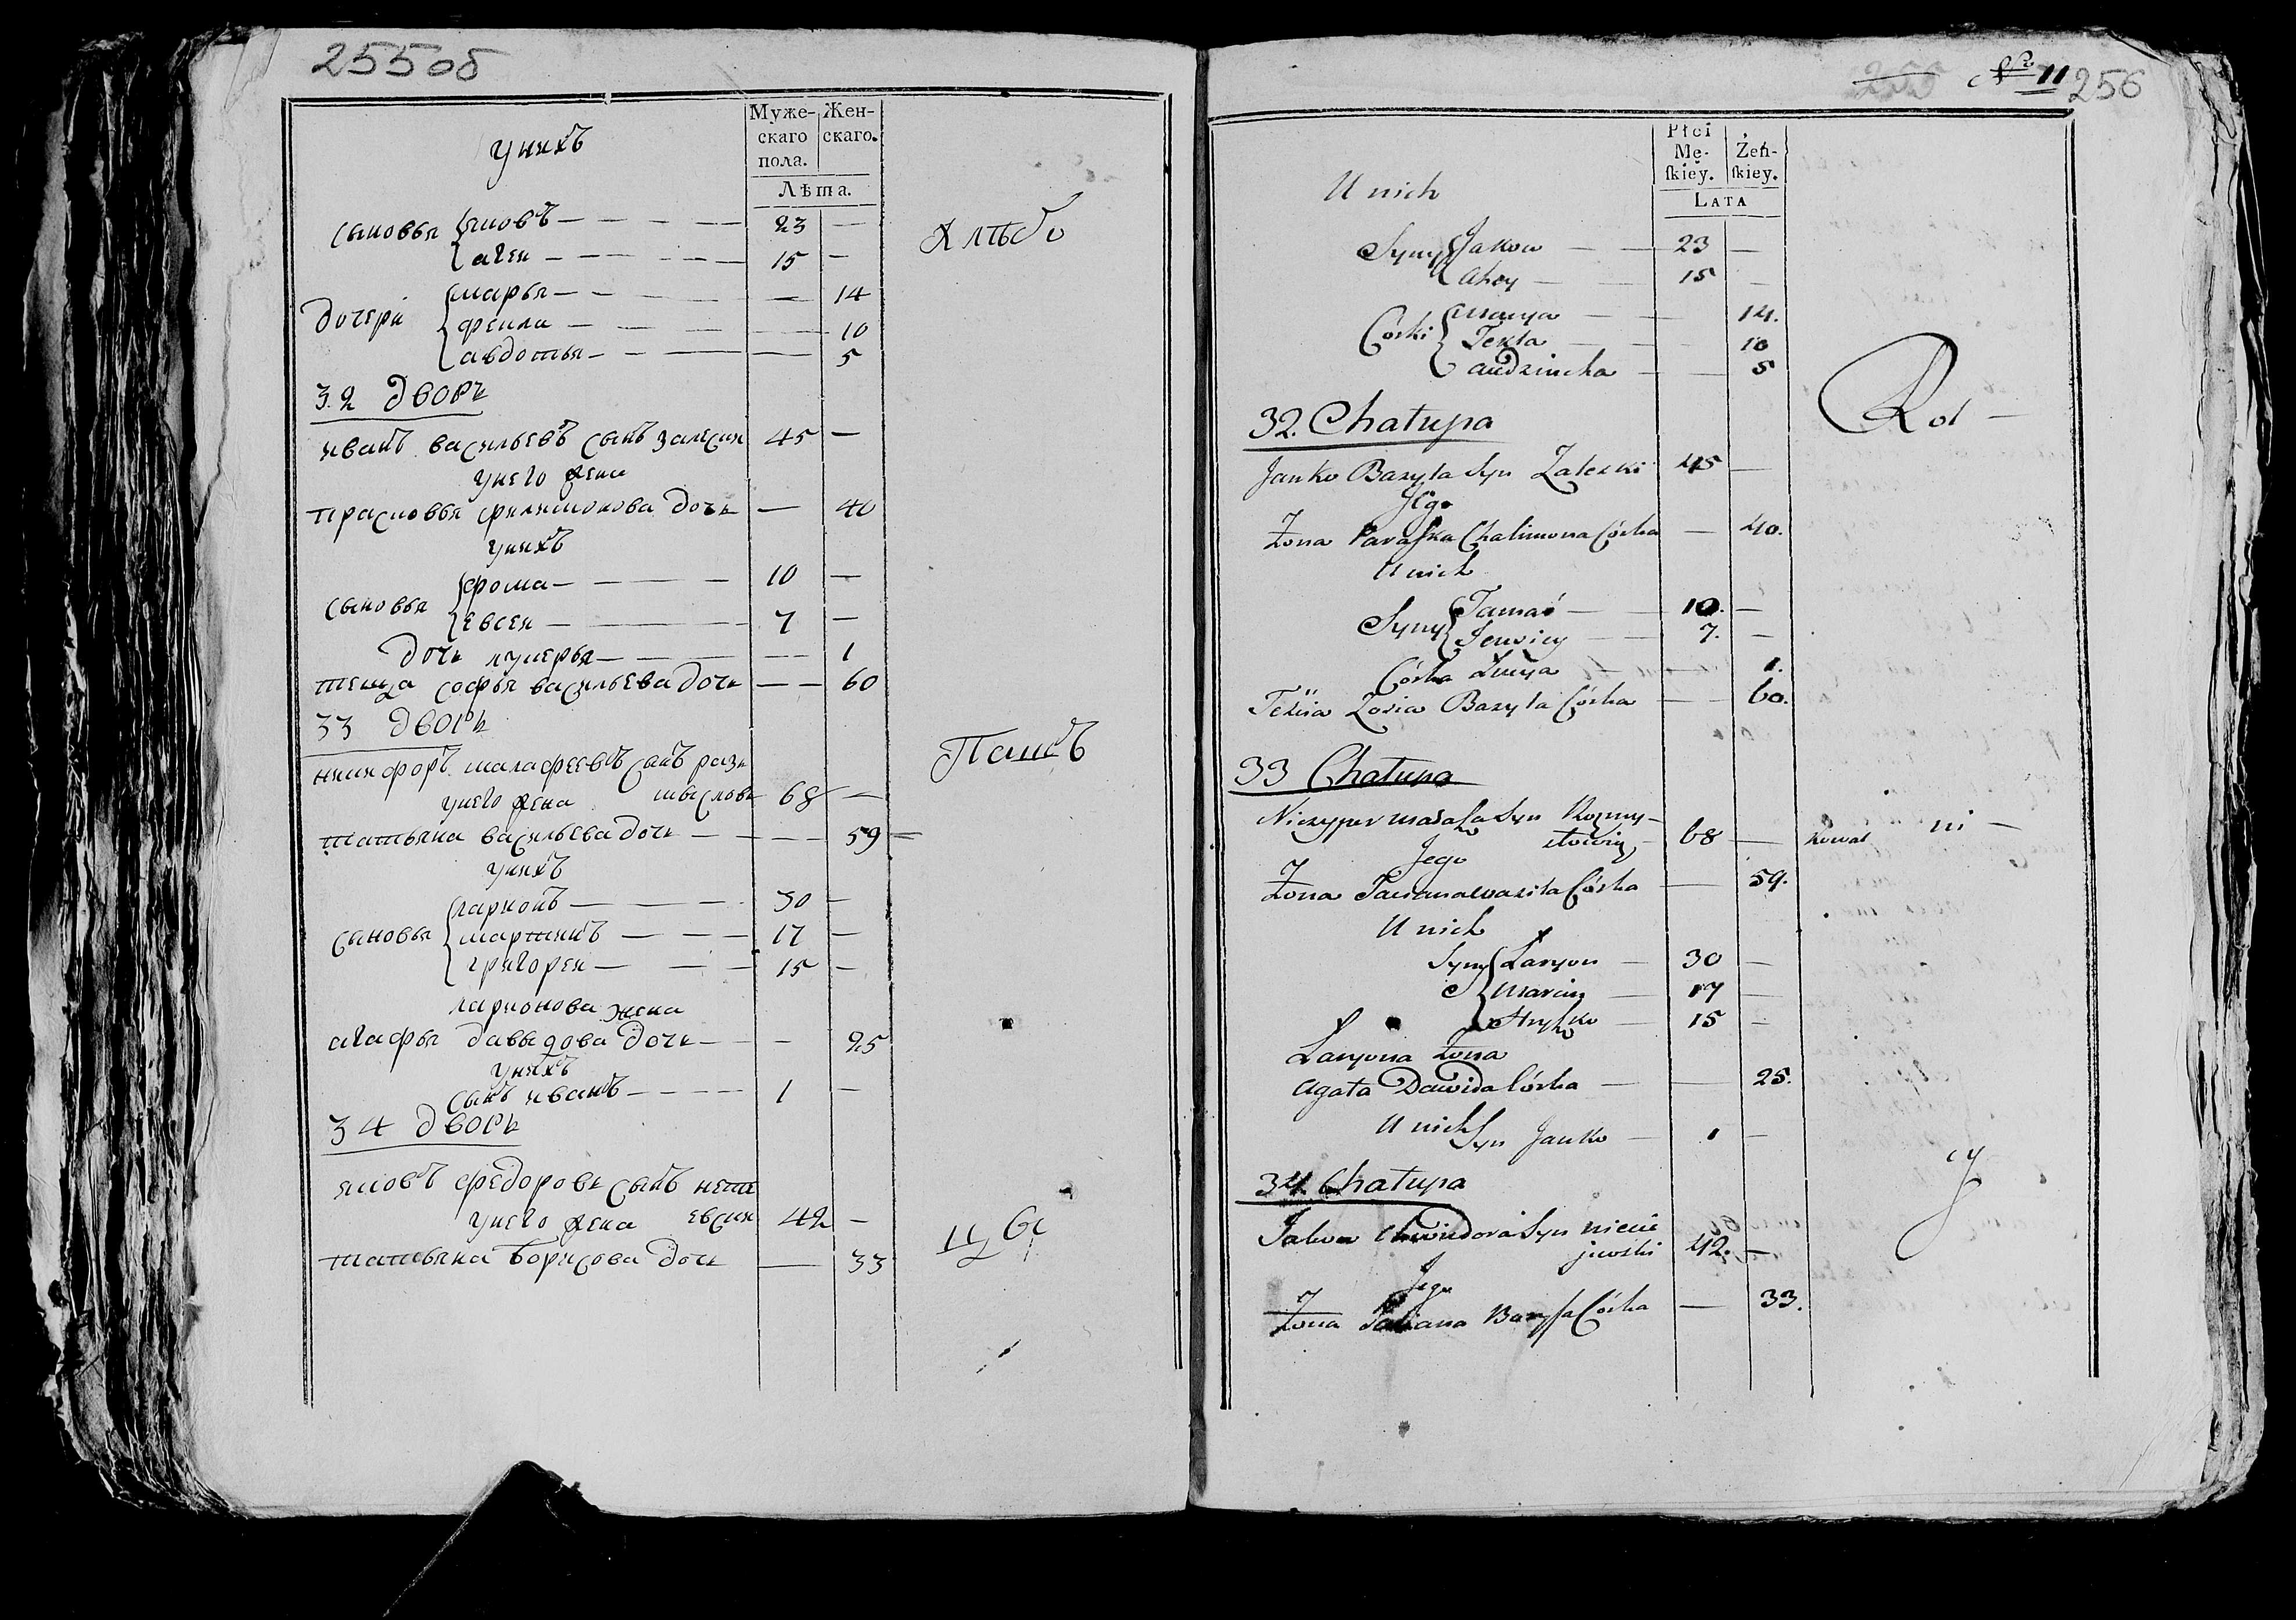 255об
Муже-
скаго
пола.
Жен-
скаго.
Лѣта.
унихъ
сыновья
яковъ — 23 —
агей — 15 —
дочери
марья — 14
фекла — 10
авдотья — 5
Хлѣбо
32 дворъ
иванъ васильевъ сынъ залески 45 —
унего жена
прасковья филимонова дочь — 40
унихъ
сыновья
фома — 10 —
евсей — 7 —
дочь лукерья — 1
теща софья васильева дочь — 60
33 дворъ
никифоръ малафеевъ сынъ разь
мысловь 68 —
унего жена
татьяна васильева дочь — 59 —
Пашъ
унихъ
сыновья
ларионъ — 30 —
мартинъ — 17 —
григорей — 15 —
ларионова жена
агафья давыдова дочь — 25
унихъ
сынъ иванъ — 1 —
34 дворъ
яковъ федоровъ сынъ неше
евски 42 —
унего жена
татьяна борисова дочь — 33
цы
№ 11
256
Płci
Mę-
ſkiéy.
Żeń-
ſkiey.
LATA
U nich
Syny
Jakow — 23 —
Ahey — 15 —
Córki
Marya — 14.
Tekla — 10
Audziucha — 5
Rol —
32. Chałupa
Janko Bazyla Syn Zaleski 45 —
Jego
Żona Paraska Chalimona Córka — 40.
U nich
Syny
Tamaś — 10. —
Jewsiey — 7. —
Córka Łucya — 1.
Teścia Zosia Bazyla Córka — 60.
33 Chałupa
Niczypor Małafa Syn Rozmy-
słowicz 68 — Kowal
ni —
Jego
Żona Taciana Wasila Córka — 59.
U nich
Syny
Łaryon — 30 —
Marcin — 17 —
Hryhko — 15 —
Łaryona Żona
Agata Dawida Córka — 25.
U nich
Syn Janko — 1 —
34. Chałupa
cy
Jakow Chwiedora Syn Niecie
jewski 42. —
Jego
Żona Taciana Barysa Córka — 33.